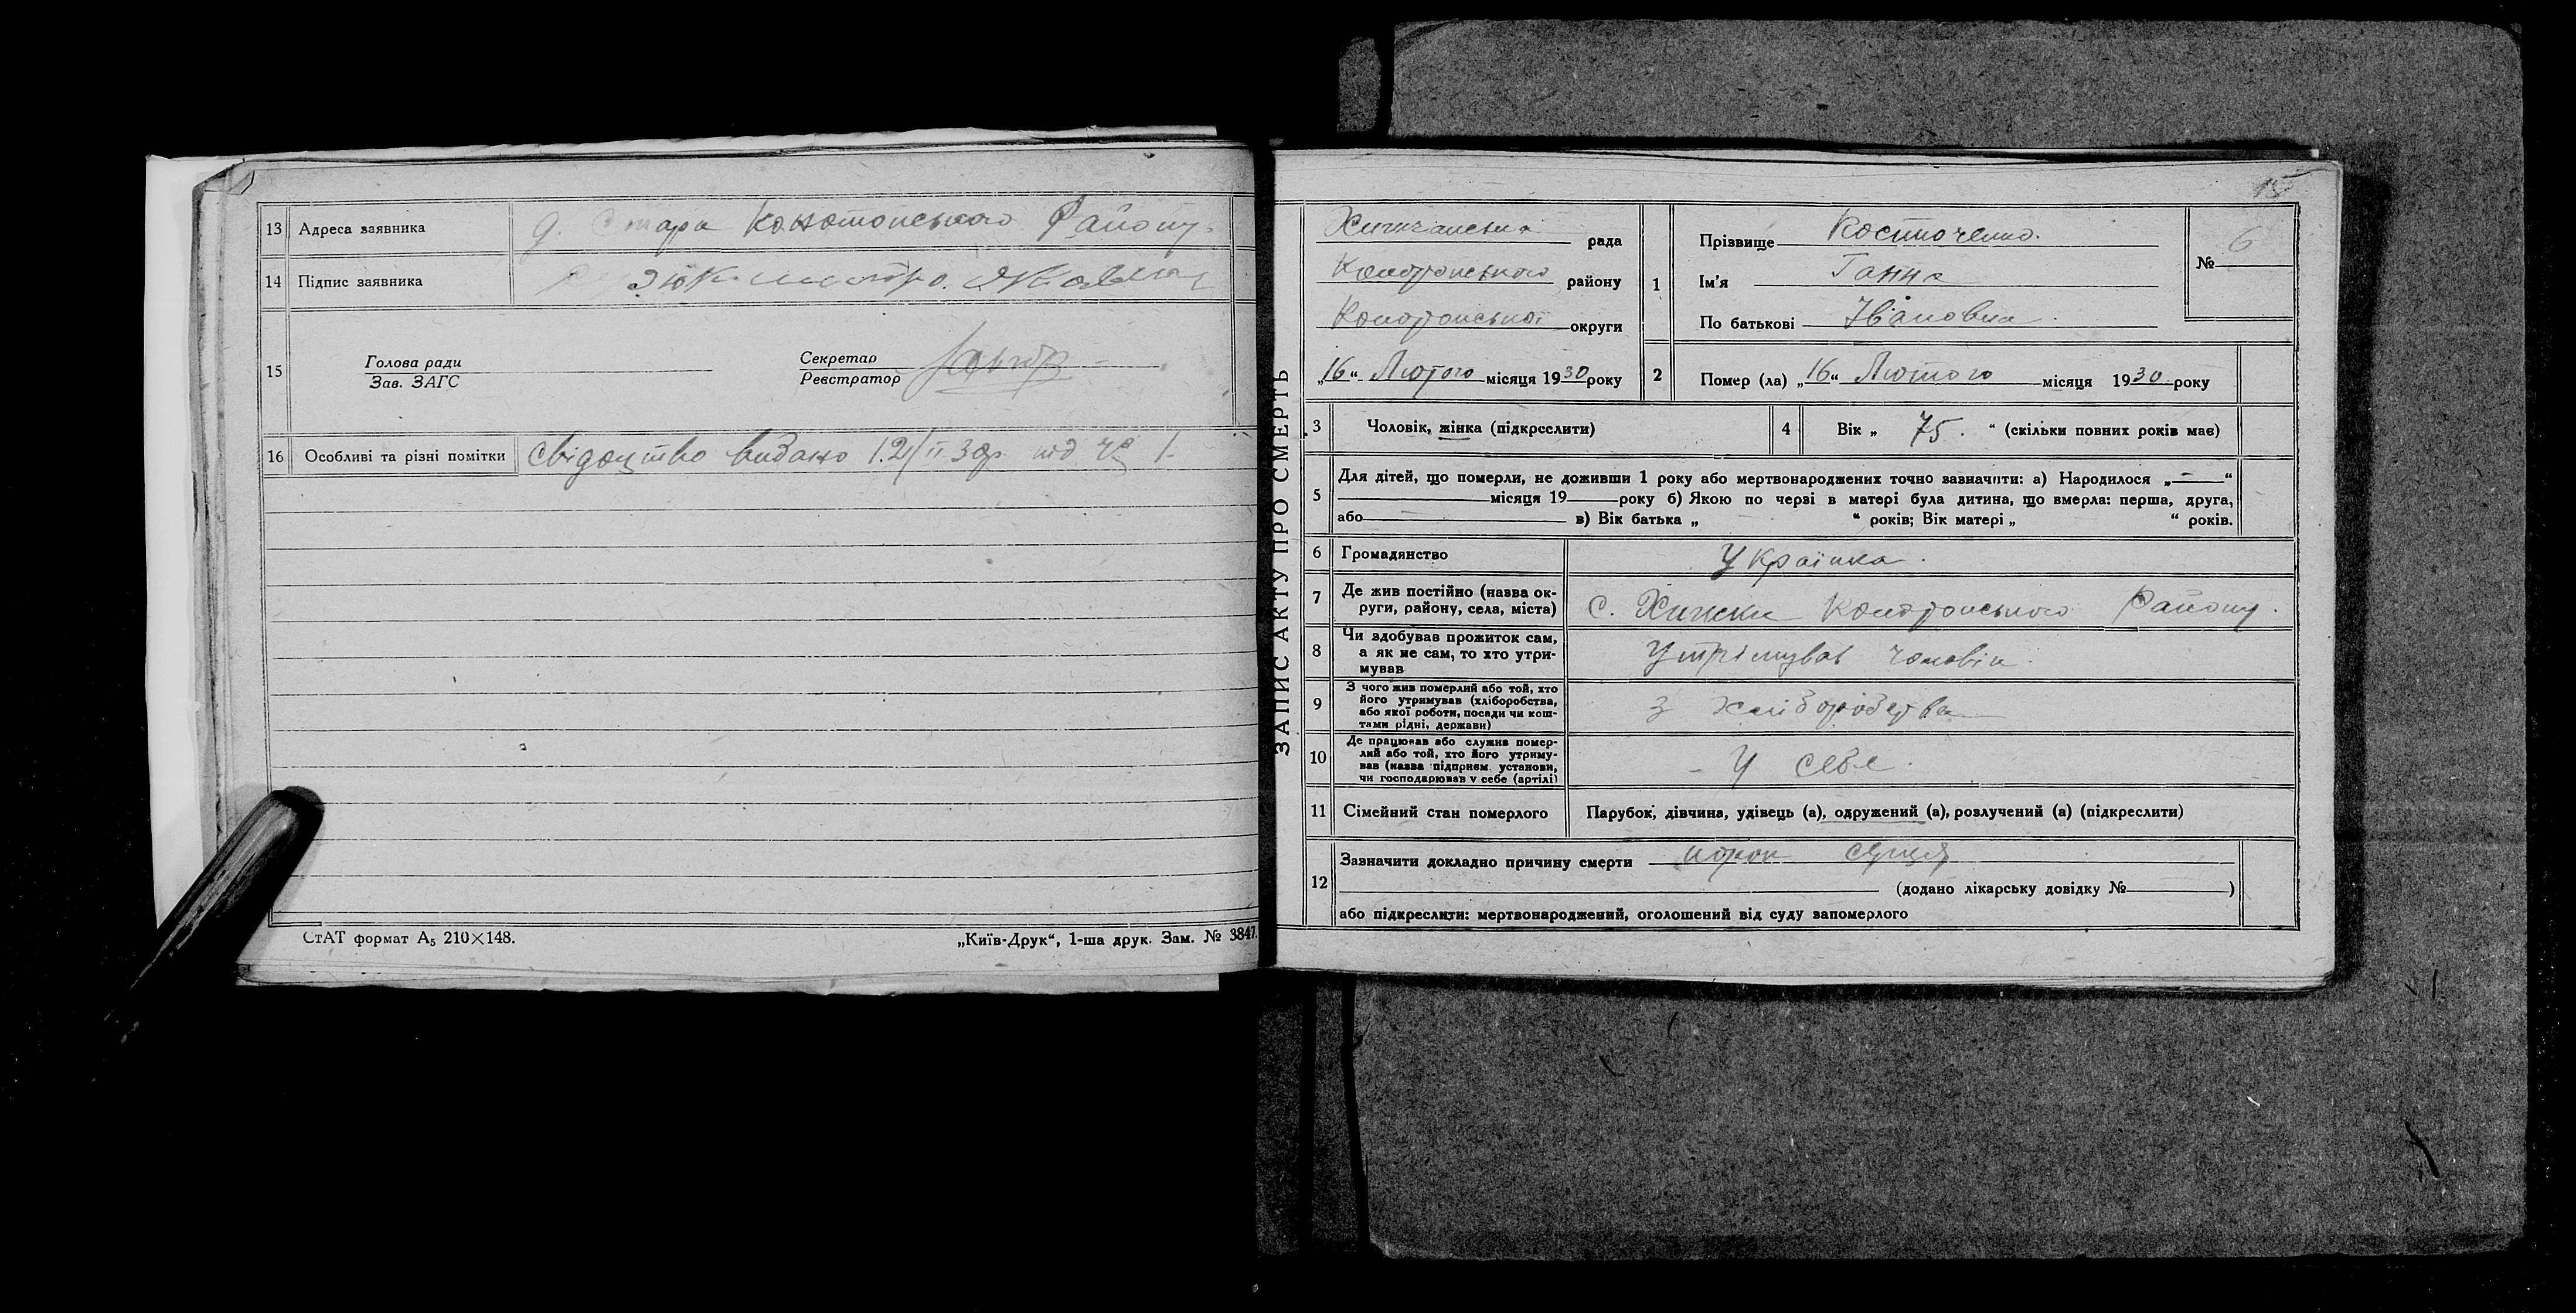 13 Адреса заявника д. Стара Конотопського Району.
14 Підпис заявника
15 Голова ради Зав. ЗАГС Секретар Реєстратор
16 Особливі та різні помітки свідоцтво видано 12/II 30р. під № 1
СтАТ формат А₅ 210×148.
„Київ-Друк“, 1-ша друк. Зам. № 3847.
15
ЗАПИС АКТУ ПРО СМЕРТЬ
рада
Конотопського району
Конотопської округи
„16“ Лютого місяця 1930 року
1 Прізвище Костюченко.
Ім'я Ганна
По батькові Івановна.
№ 6
2 Помер (ла) „16“ Лютого місяця 1930 року
3 Чоловік, жінка (підкреслити)
4 Вік „ 75. “ (скільки повних років має)
5 Для дітей, що померли, не доживши 1 року або мертвонароджених точно зазначити: а) Народилося „—“
місяця 19 року б) Якою по черзі в матері була дитина, що вмерла: перша, друга,
або в) Вік батька „ “ років; Вік матері „ “ років.
6 Громадянство Українка.
7 Де жив постійно (назва округи, району, села, міста) с. Хижки Конотопського Району.
8 Чи здобував прожиток сам, а як не сам, то хто утримував Утрімував чоловік.
9 З чого жив померлий або той, хто його утримував (хліборобства, або якої роботи, посади чи коштами рідні, держави) З хліборобства
10 Де працював або служив померлий або той, хто його утримував (назва підприєм. установи, чи господарював у себе (артілі) – У себе.
11 Сімейний стан померлого Парубок, дівчина, удівець (а), одружений (а), розлучений (а) (підкреслити)
12 Зазначити докладно причину смерти порок серця
(додано лікарську довідку № )
або підкреслити: мертвонароджений, оголошений від суду запомерлого